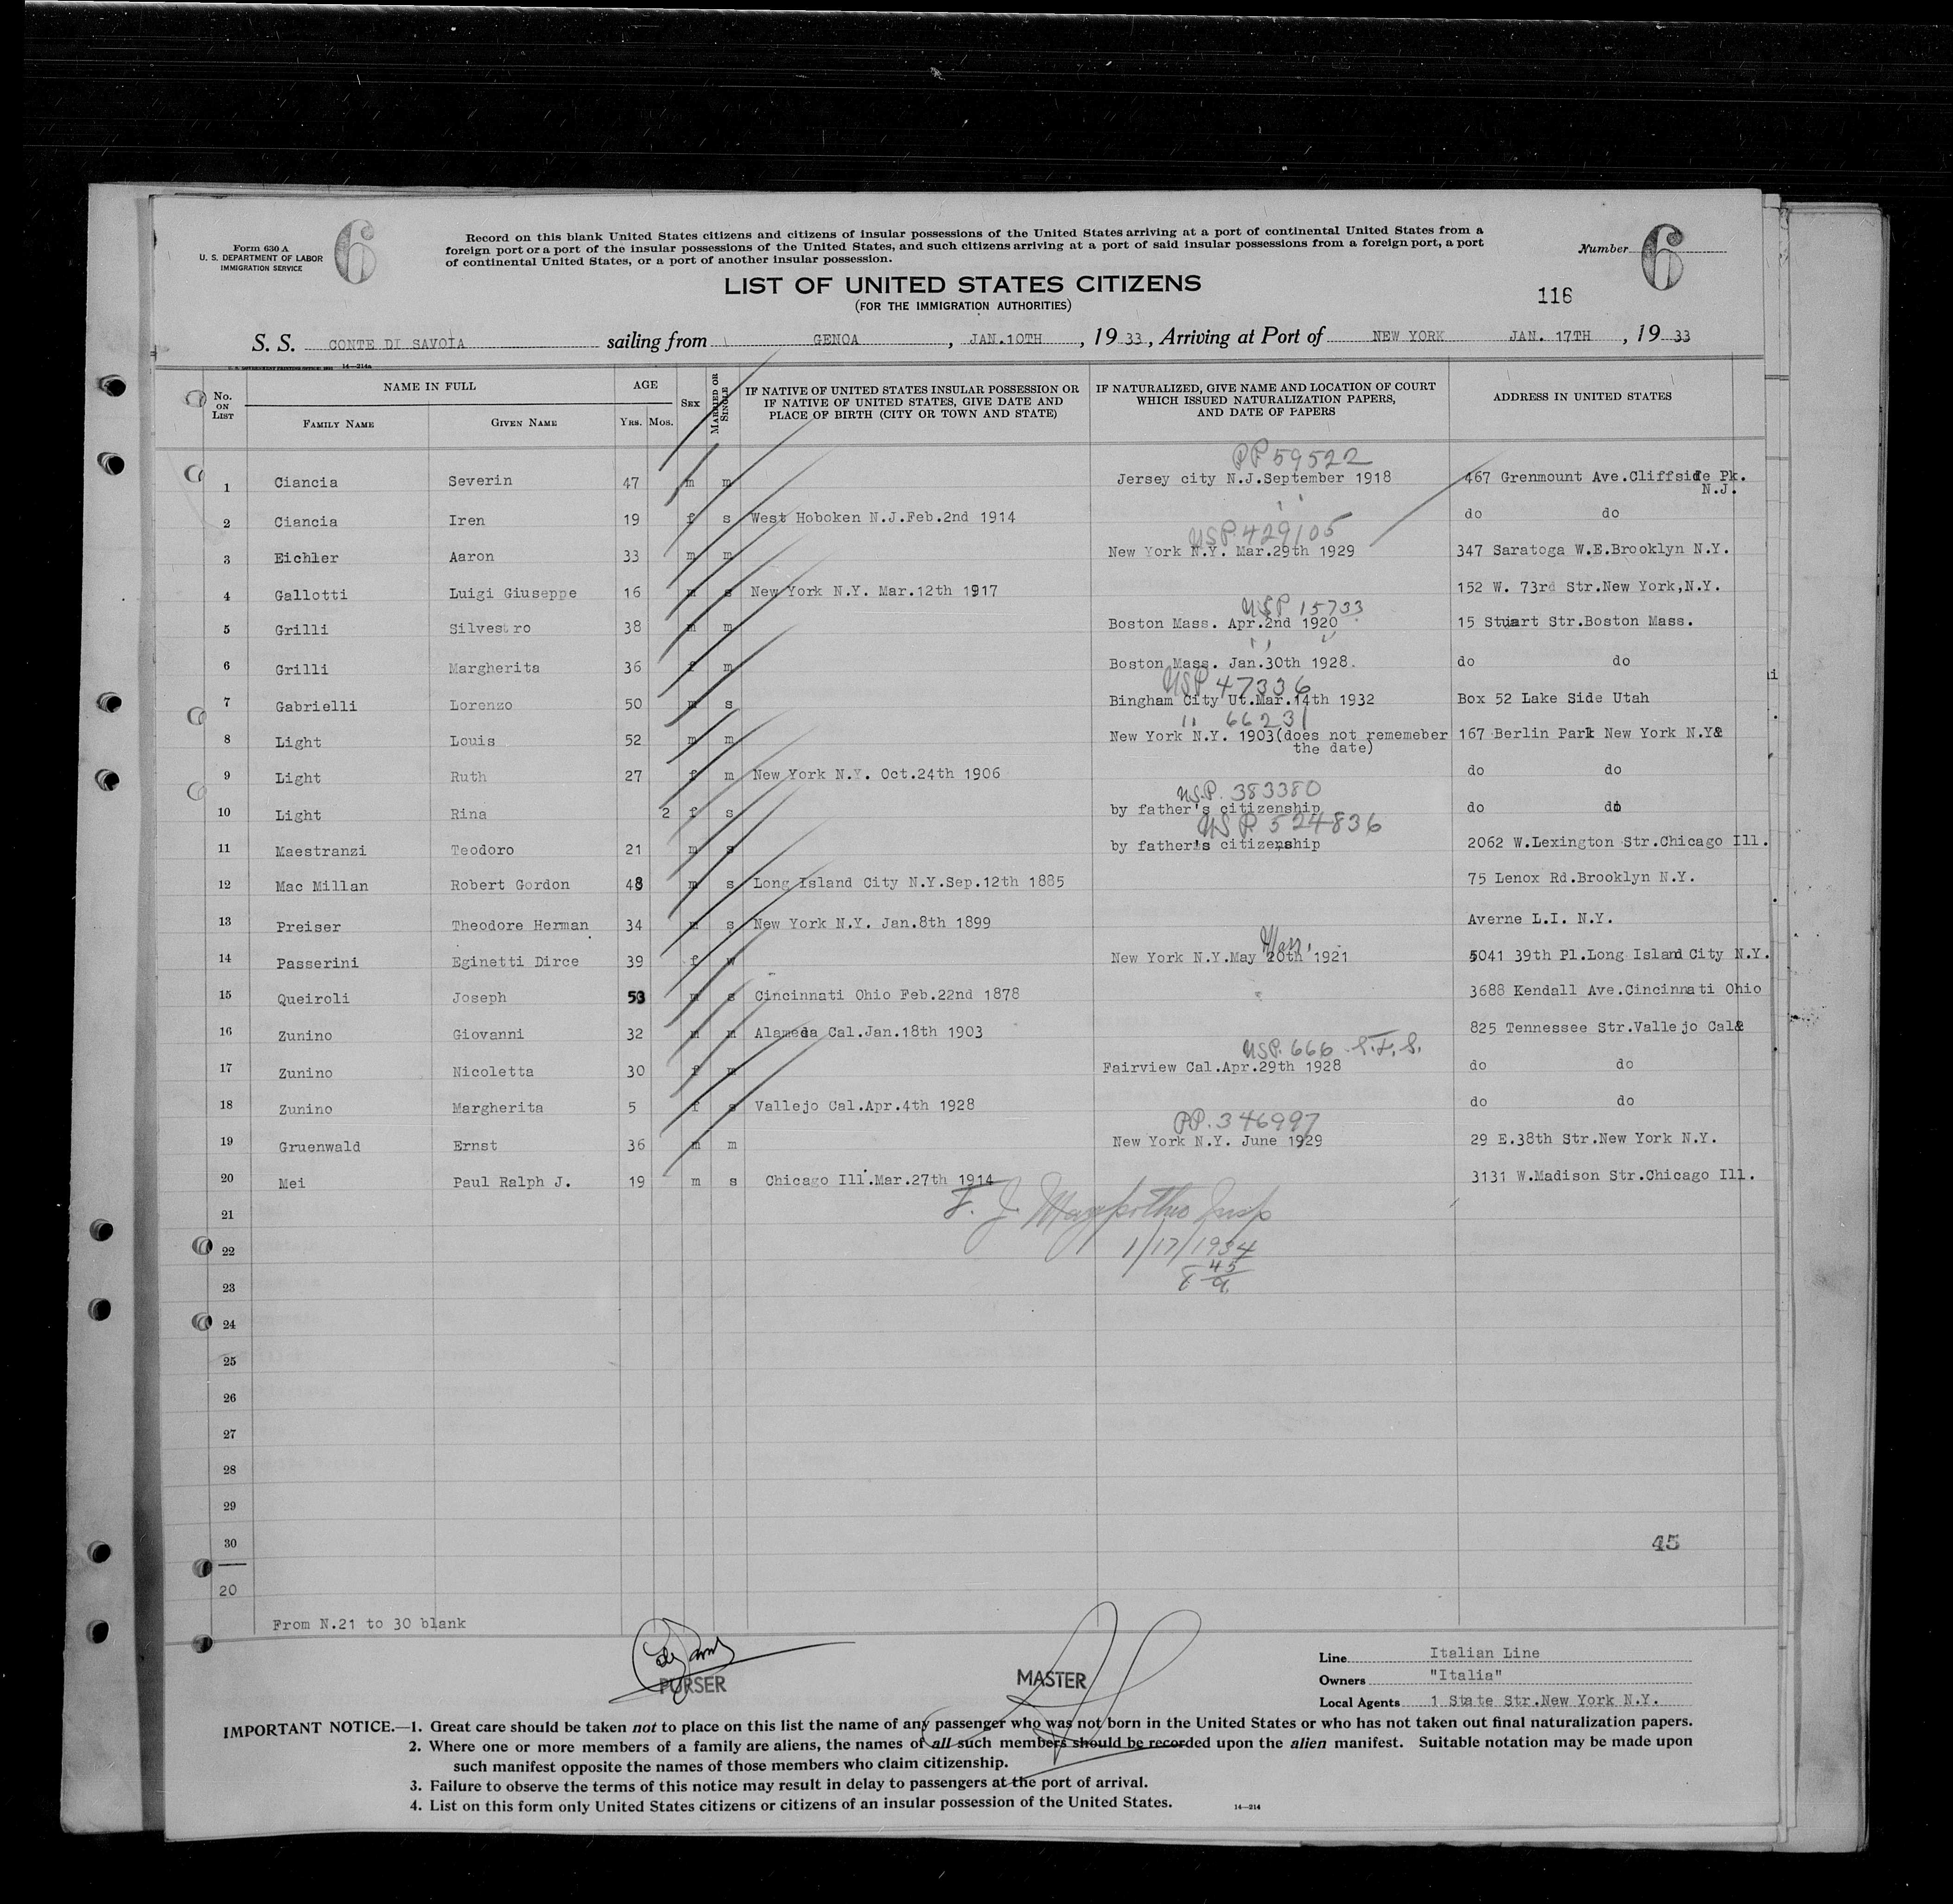 Form 630 A
U. S. DEPARTMENT OF LABOR
IMMIGRATION SERVICE
6
Record on this blank United States citizens and citizens of insular possessions of the United States arriving at a port of continental United States from a
foreign port or a port of the insular possessions of the United States, and such citizens arriving at a port of said insular possessions from a foreign port, a port
of continental United States, or a port of another insular possession.
Number 6
LIST OF UNITED STATES CITIZENS
(FOR THE IMMIGRATION AUTHORITIES)
116
S. S. CONTE DI SAVOIA sailing from GENOA, JAN.10TH, 1933, Arriving at Port of NEW YORK JAN. 17TH, 1933
14—214a
No. ON LIST NAME IN FULL AGE SEX MARRIED OR SINGLE IF NATIVE OF UNITED STATES INSULAR POSSESSION OR IF NATIVE OF UNITED STATES, GIVE DATE AND PLACE OF BIRTH (CITY OR TOWN AND STATE) IF NATURALIZED, GIVE NAME AND LOCATION OF COURT WHICH ISSUED NATURALIZATION PAPERS, AND DATE OF PAPERS ADDRESS IN UNITED STATES
FAMILY NAME GIVEN NAME YRS. MOS.
PP 59522
1 Ciancia Severin 47 m m Jersey city N.J.September 1918 467 Grenmount Ave.Cliffside Pk.
N.J.
2 Ciancia Iren 19 f s West Hoboken N.J.Feb.2nd 1914 do do
USP.429105
3 Eichler Aaron 33 m m New York N.Y. Mar.29th 1929 347 Saratoga W.E.Brooklyn N.Y.
4 Gallotti Luigi Giuseppe 16 m s New York N.Y. Mar.12th 1917 152 W. 73rd Str.New York,N.Y.
USP 15733
5 Grilli Silvestro 38 m m Boston Mass. Apr.2nd 1920 15 Stuart Str.Boston Mass.
6 Grilli Margherita 36 f m Boston Mass. Jan.30th 1928. do do
USP 47336
7 Gabrielli Lorenzo 50 m s Bingham City Ut.Mar.14th 1932 Box 52 Lake Side Utah
" 66231
8 Light Louis 52 m m New York N.Y. 1903(does not rememeber 167 Berlin Park New York N.Y&
the date)
9 Light Ruth 27 f m New York N.Y. Oct.24th 1906 do do
U.S.P. 383380
10 Light Rina 2 f s by father's citizenship do do
USP. 524836
11 Maestranzi Teodoro 21 m s by father's citizenship 2062 W.Lexington Str.Chicago Ill.
12 Mac Millan Robert Gordon 48 m s Long Island City N.Y.Sep.12th 1885 75 Lenox Rd.Brooklyn N.Y.
13 Preiser Theodore Herman 34 m s New York N.Y. Jan.8th 1899 Averne L.I. N.Y.
14 Passerini Eginetti Dirce 39 f w New York N.Y.May 20th 1921 5041 39th Pl.Long Island City N.Y.
15 Queiroli Joseph 53 m s Cincinnati Ohio Feb.22nd 1878 3688 Kendall Ave.Cincinnati Ohio
16 Zunino Giovanni 32 m m Alameda Cal.Jan.18th 1903 825 Tennessee Str.Vallejo Cal&
USP. 666 S.F.S.
17 Zunino Nicoletta 30 f m Fairview Cal.Apr.29th 1928 do do
18 Zunino Margherita 5 f s Vallejo Cal.Apr.4th 1928 do do
PP. 346997
19 Gruenwald Ernst 36 m m New York N.Y. June 1929 29 E.38th Str.New York N.Y.
20 Mei Paul Ralph J. 19 m s Chicago Ill.Mar.27th 1914 3131 W.Madison Str.Chicago Ill.
21
F. J. Insp
22
1/17/1934
23
8 45/a.
24
25
26
27
28
29
30
45
20
From N.21 to 30 blank
PURSER
MASTER
Line Italian Line
Owners "Italia"
Local Agents 1 State Str.New York N.Y.
IMPORTANT NOTICE.—1. Great care should be taken not to place on this list the name of any passenger who was not born in the United States or who has not taken out final naturalization papers.
2. Where one or more members of a family are aliens, the names of all such members should be recorded upon the alien manifest. Suitable notation may be made upon
such manifest opposite the names of those members who claim citizenship.
3. Failure to observe the terms of this notice may result in delay to passengers at the port of arrival.
4. List on this form only United States citizens or citizens of an insular possession of the United States.
14—214